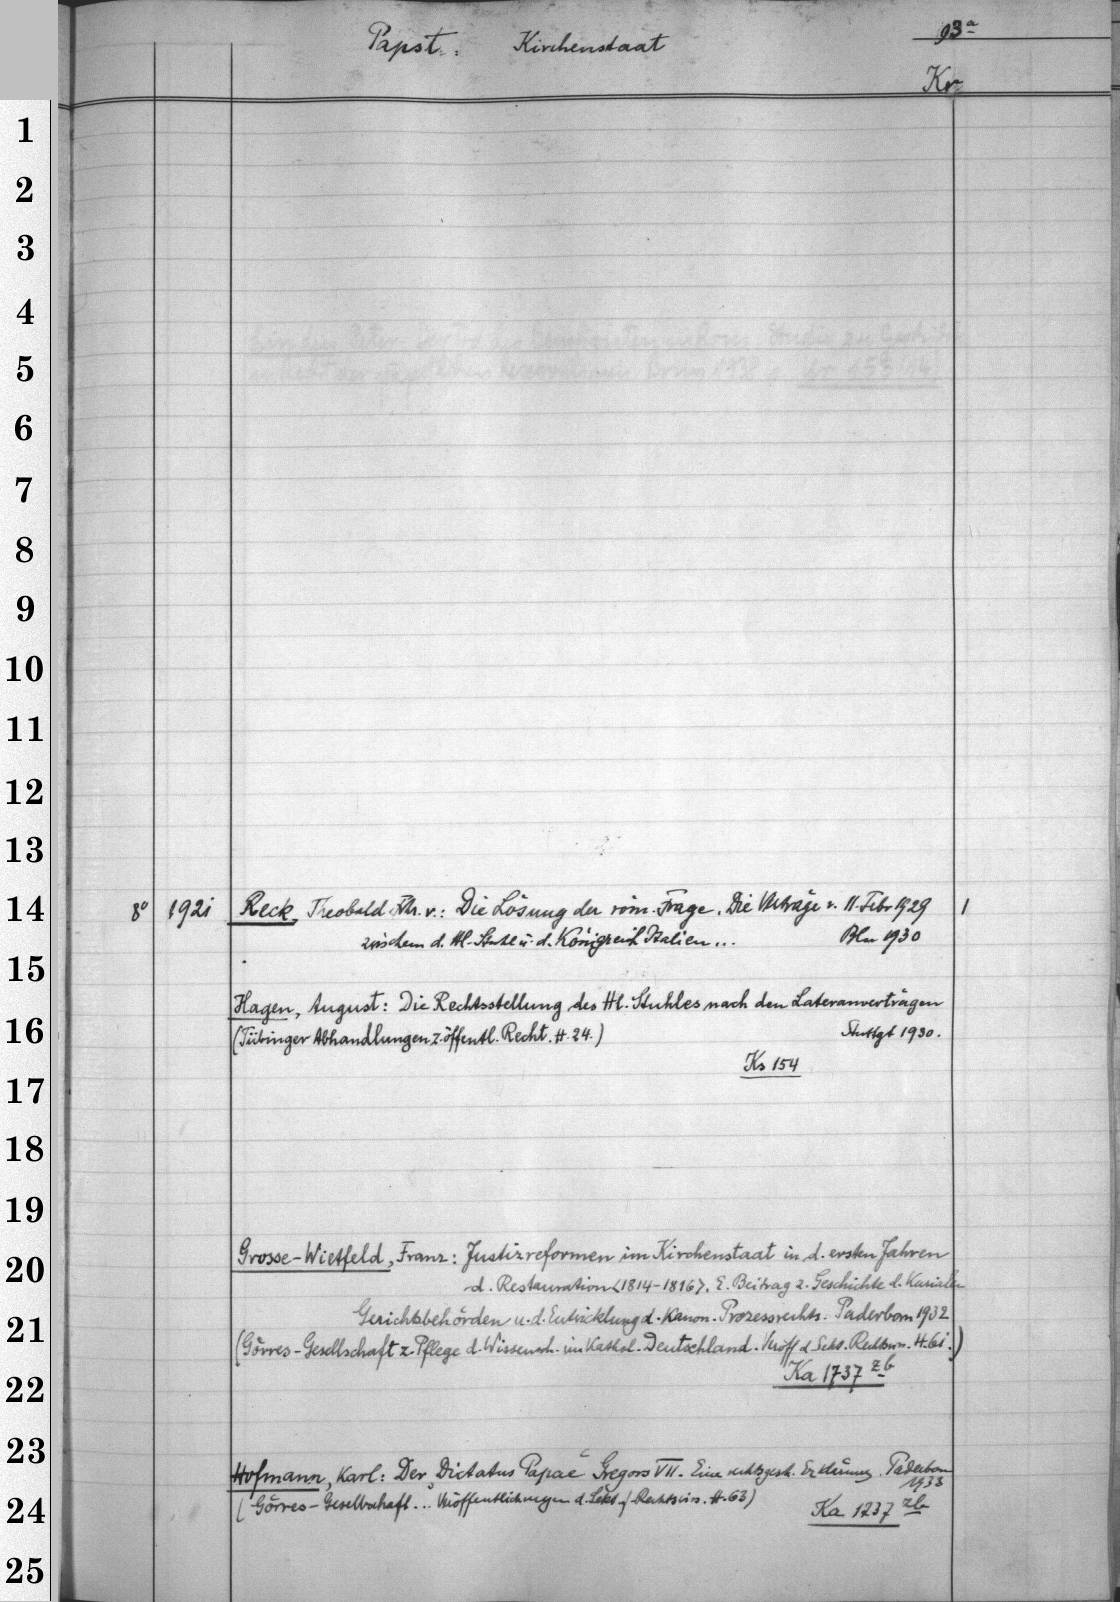 Papst. Kirchenstaat
93ª
Kr
1
2
3
4
5
6
7
8
9
10
11
12
13
14
8° 192i Reck, Theobald Frh. v.: Die Lösung der röm. Frage. Die Verträge v. 11. Febr 1929 1
zwischen d. Hl. Stuhl u. d. Königreich Italien... Bln 1930
15
Hagen, August: Die Rechtsstellung des Hl. Stuhles nach den Lateranverträgen
16
(Tübinger Abhandlungen z. öffentl. Recht. H. 24.) Stuttgt 1930.
Ks 154
17
18
19
Grosse-Wietfeld, Franz: Justizreformen im Kirchenstaat in d. ersten Jahren
20
d. Restauration <1814-1816>. E. Beitrag z. Geschichte d. Kurialen
Gerichtsbehörden u. d. Entwicklung d. Kanon. Prozessrechts. Paderborn 1932
21
(Görres-Gesellschaft z. Pflege d. Wissensch. im Kathol. Deutschland. Veröff d Sekt. Rechtsw. H. 61.)
Ka 1737 zb
22
23
Hofmann, Karl: Der Dictatus Papae Gregors VII. Eine rechtsgesch. Erklärung. Paderborn
1933
(Görres-Gesellschaft... Veröffentlichungen d. Sekt. f. Rechtswiss. H. 63)
24
Ka 1737 zb
25